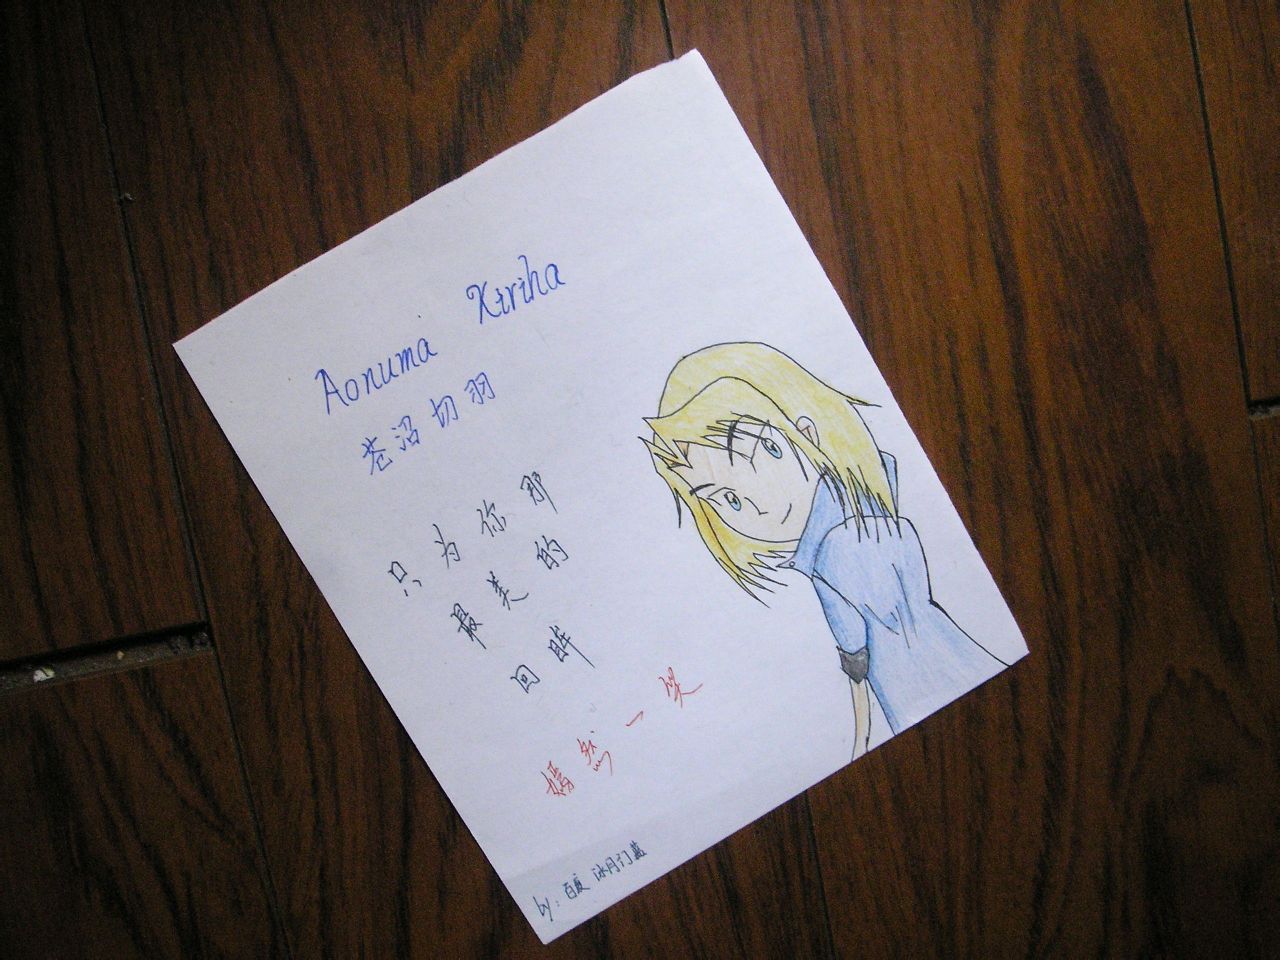 Aonuma Kiriha
苍沼切羽
只为你那
最美的
回眸
嫣然一笑
by：百度 冰月门蓝